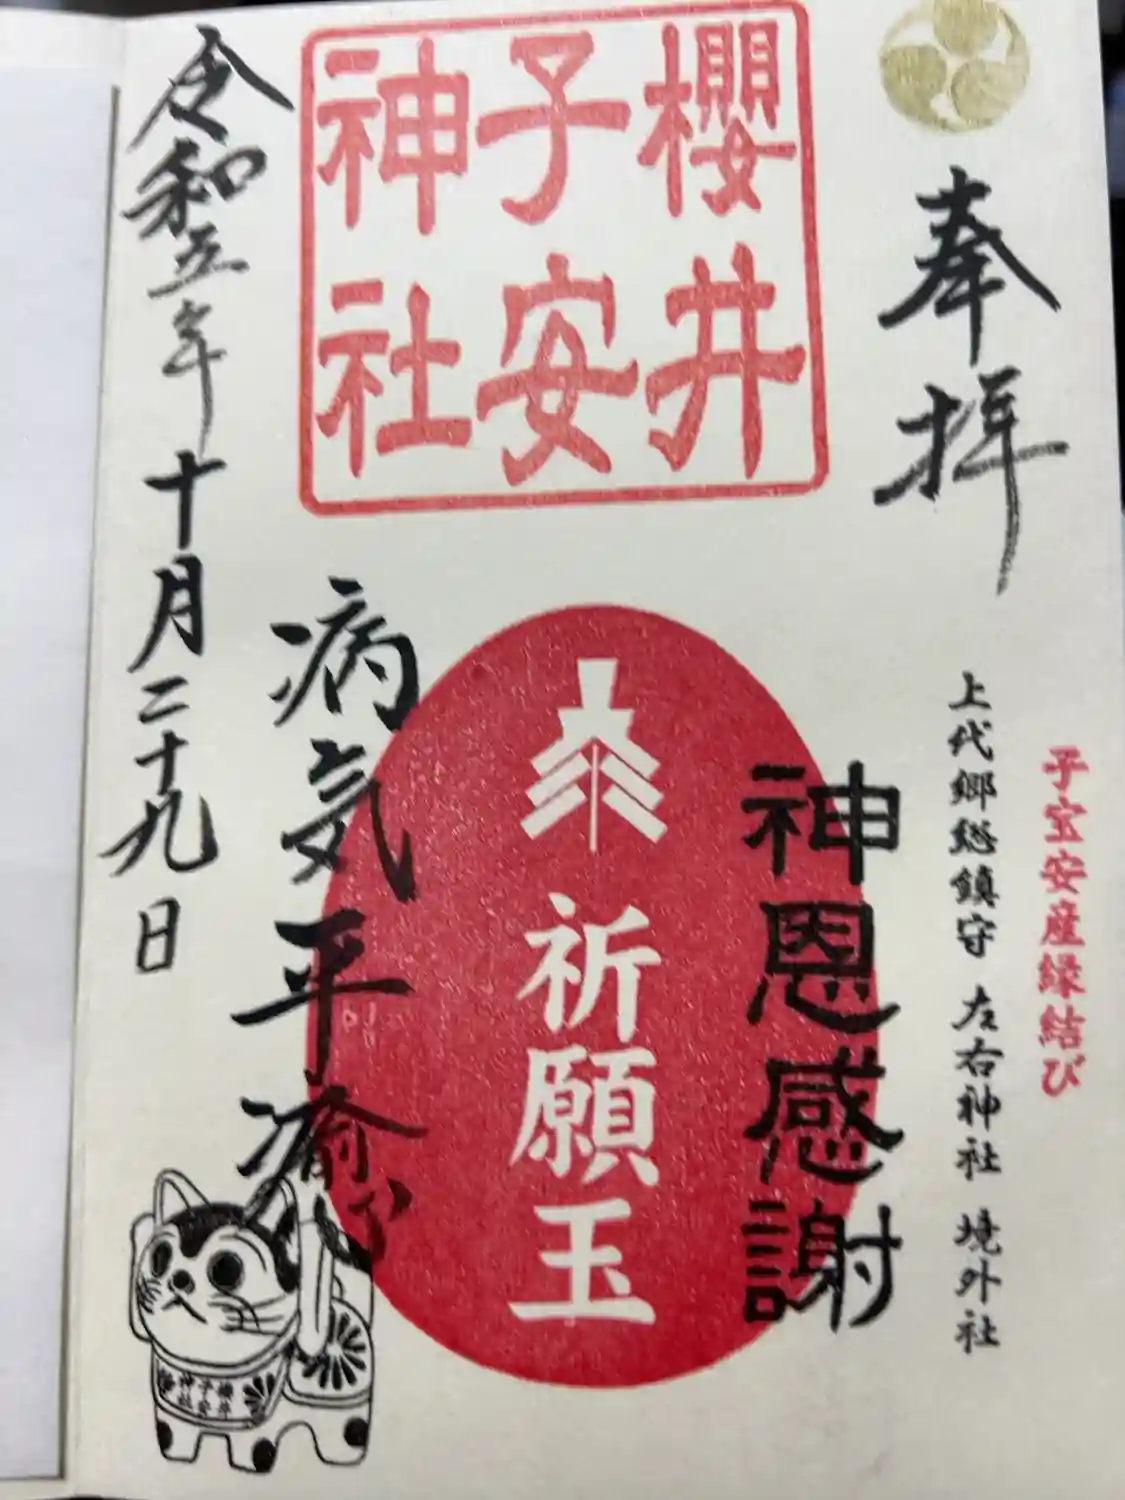 奉拝
子宝安産縁結び
上代郷総鎮守 左右神社 境外社
櫻井
子安
神社
神恩感謝
祈願玉
病気平癒
令和五年十月二十九日
櫻井
子安
神社